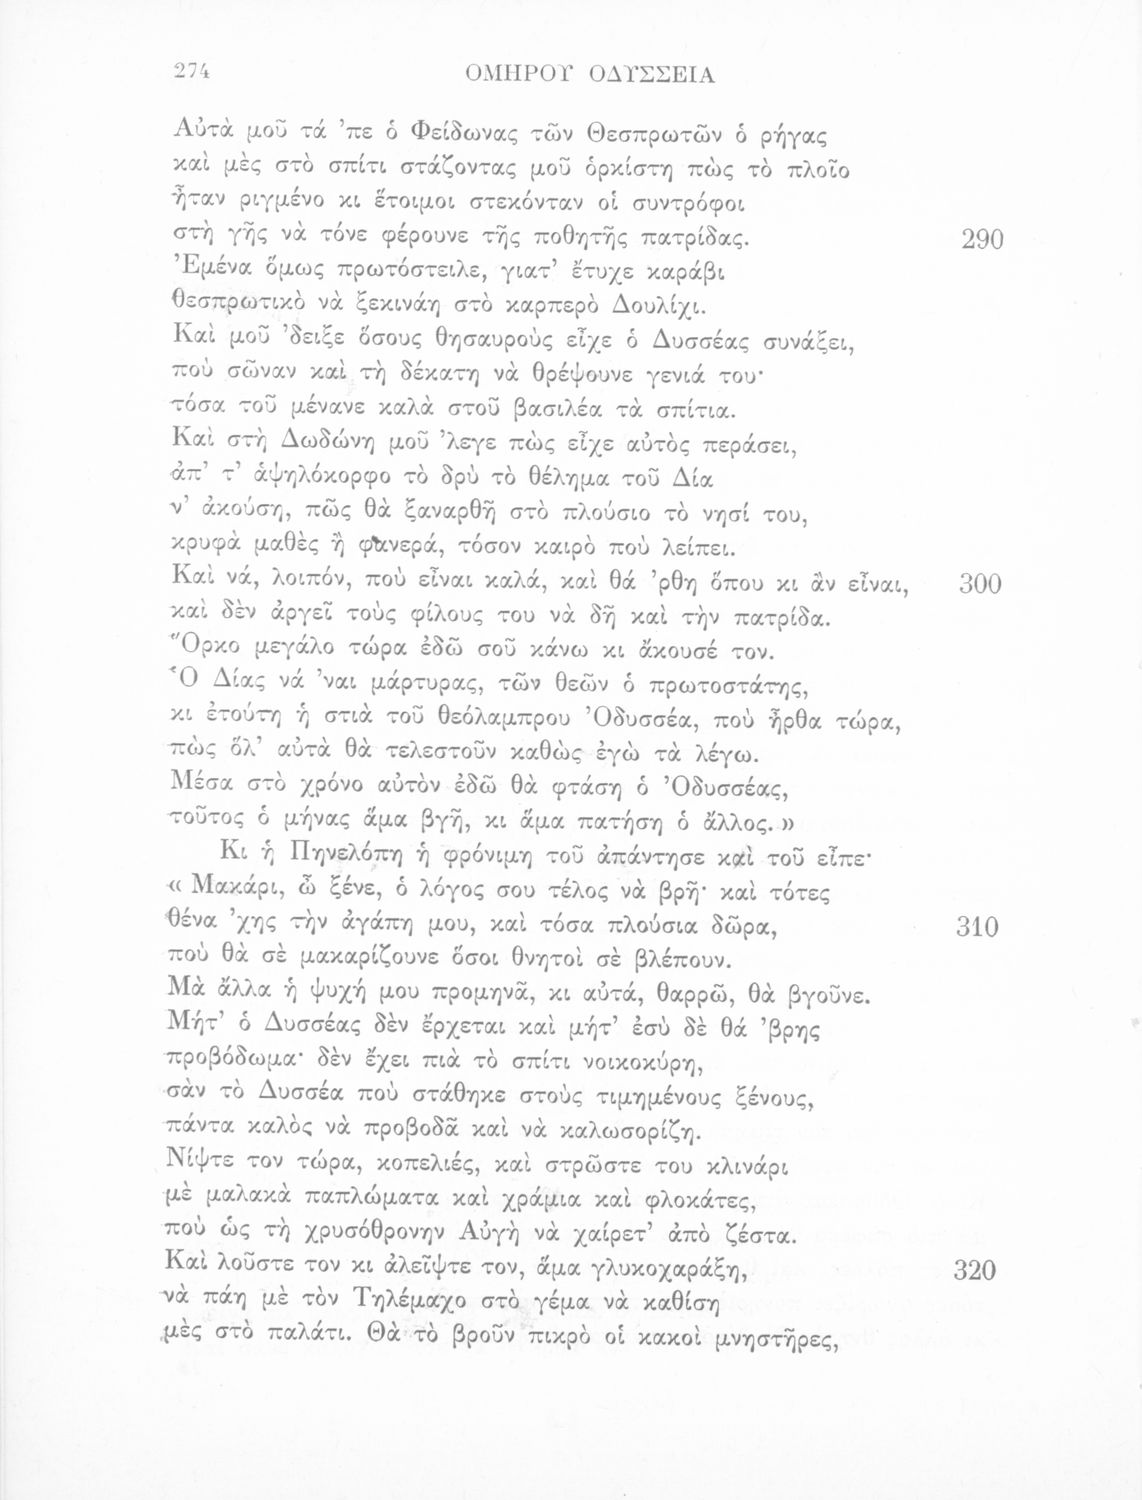 274 ΟΜΗΡΟΥ ΟΔΥΣΣΕΙΑ
Αὐτὰ μοῦ τά ’πε ὁ Φείδωνας τῶν Θεσπρωτῶν ὁ ρήγας
καὶ μὲς στὸ σπίτι στάζοντας μοῦ ὁρκίστη πὼς τὸ πλοῖο
ἦταν ριγμένο κι ἕτοιμοι στεκόνταν οἱ συντρόφοι
στὴ γῆς νὰ τόνε φέρουνε τῆς ποθητῆς πατρίδας. 290
Ἐμένα ὅμως πρωτόστειλε, γιατ’ ἔτυχε καράβι
θεσπρωτικὸ νὰ ξεκινάη στὸ καρπερὸ Δουλίχι.
Καὶ μοῦ ’δειξε ὅσους θησαυροὺς εἶχε ὁ Δυσσέας συνάξει,
ποὺ σῶναν καὶ τὴ δέκατη νὰ θρέψουνε γενιά του·
τόσα τοῦ μένανε καλὰ στοῦ βασιλέα τὰ σπίτια.
Καὶ στὴ Δωδώνη μοῦ ’λεγε πὼς εἶχε αὐτὸς περάσει,
ἀπ’ τ’ ἁψηλόκορφο τὸ δρὺ τὸ θέλημα τοῦ Δία
ν’ ἀκούση, πῶς θὰ ξαναρθῆ στὸ πλούσιο τὸ νησί του,
κρυφὰ μαθὲς ἢ φανερά, τόσον καιρὸ ποὺ λείπει.
Καὶ νά, λοιπόν, ποὺ εἶναι καλά, καὶ θά ’ρθη ὅπου κι ἂν εἶναι, 300
καὶ δὲν ἀργεῖ τοὺς φίλους του νὰ δῆ καὶ τὴν πατρίδα.
Ὅρκο μεγάλο τώρα ἐδῶ σοῦ κάνω κι ἄκουσέ τον.
Ὁ Δίας νά ’ναι μάρτυρας, τῶν θεῶν ὁ πρωτοστάτης,
κι ἐτούτη ἡ στιὰ τοῦ θεόλαμπρου Ὀδυσσέα, ποὺ ἦρθα τώρα,
πὼς ὅλ’ αὐτὰ θὰ τελεστοῦν καθὼς ἐγὼ τὰ λέγω.
Μέσα στὸ χρόνο αὐτὸν ἐδῶ θὰ φτάση ὁ Ὀδυσσέας,
τοῦτος ὁ μήνας ἅμα βγῆ, κι ἅμα πατήση ὁ ἄλλος. »
Κι ἡ Πηνελόπη ἡ φρόνιμη τοῦ ἀπάντησε καὶ τοῦ εἶπε·
« Μακάρι, ὦ ξένε, ὁ λόγος σου τέλος νὰ βρῆ· καὶ τότες
θένα ’χης τὴν ἀγάπη μου, καὶ τόσα πλούσια δῶρα, 310
ποὺ θὰ σὲ μακαρίζουνε ὅσοι θνητοὶ σὲ βλέπουν.
Μὰ ἄλλα ἡ ψυχή μου προμηνᾶ, κι αὐτά, θαρρῶ, θὰ βγοῦνε.
Μήτ’ ὁ Δυσσέας δὲν ἔρχεται καὶ μήτ’ ἐσὺ δὲ θά ’βρης
προβόδωμα· δὲν ἔχει πιὰ τὸ σπίτι νοικοκύρη,
σὰν τὸ Δυσσέα ποὺ στάθηκε στοὺς τιμημένους ξένους,
πάντα καλὸς νὰ προβοδᾶ καὶ νὰ καλωσορίζη.
Νίψτε τον τώρα, κοπελιές, καὶ στρῶστε του κλινάρι
μὲ μαλακὰ παπλώματα καὶ χράμια καὶ φλοκάτες,
ποὺ ὡς τὴ χρυσόθρονην Αὐγὴ νὰ χαίρετ’ ἀπὸ ζέστα.
Καὶ λοῦστε τον κι ἀλεῖψτε τον, ἅμα γλυκοχαράξη, 320
νὰ πάη μὲ τὸν Τηλέμαχο στὸ γέμα νὰ καθίση
μὲς στὸ παλάτι. Θὰ τὸ βροῦν πικρὸ οἱ κακοὶ μνηστῆρες,